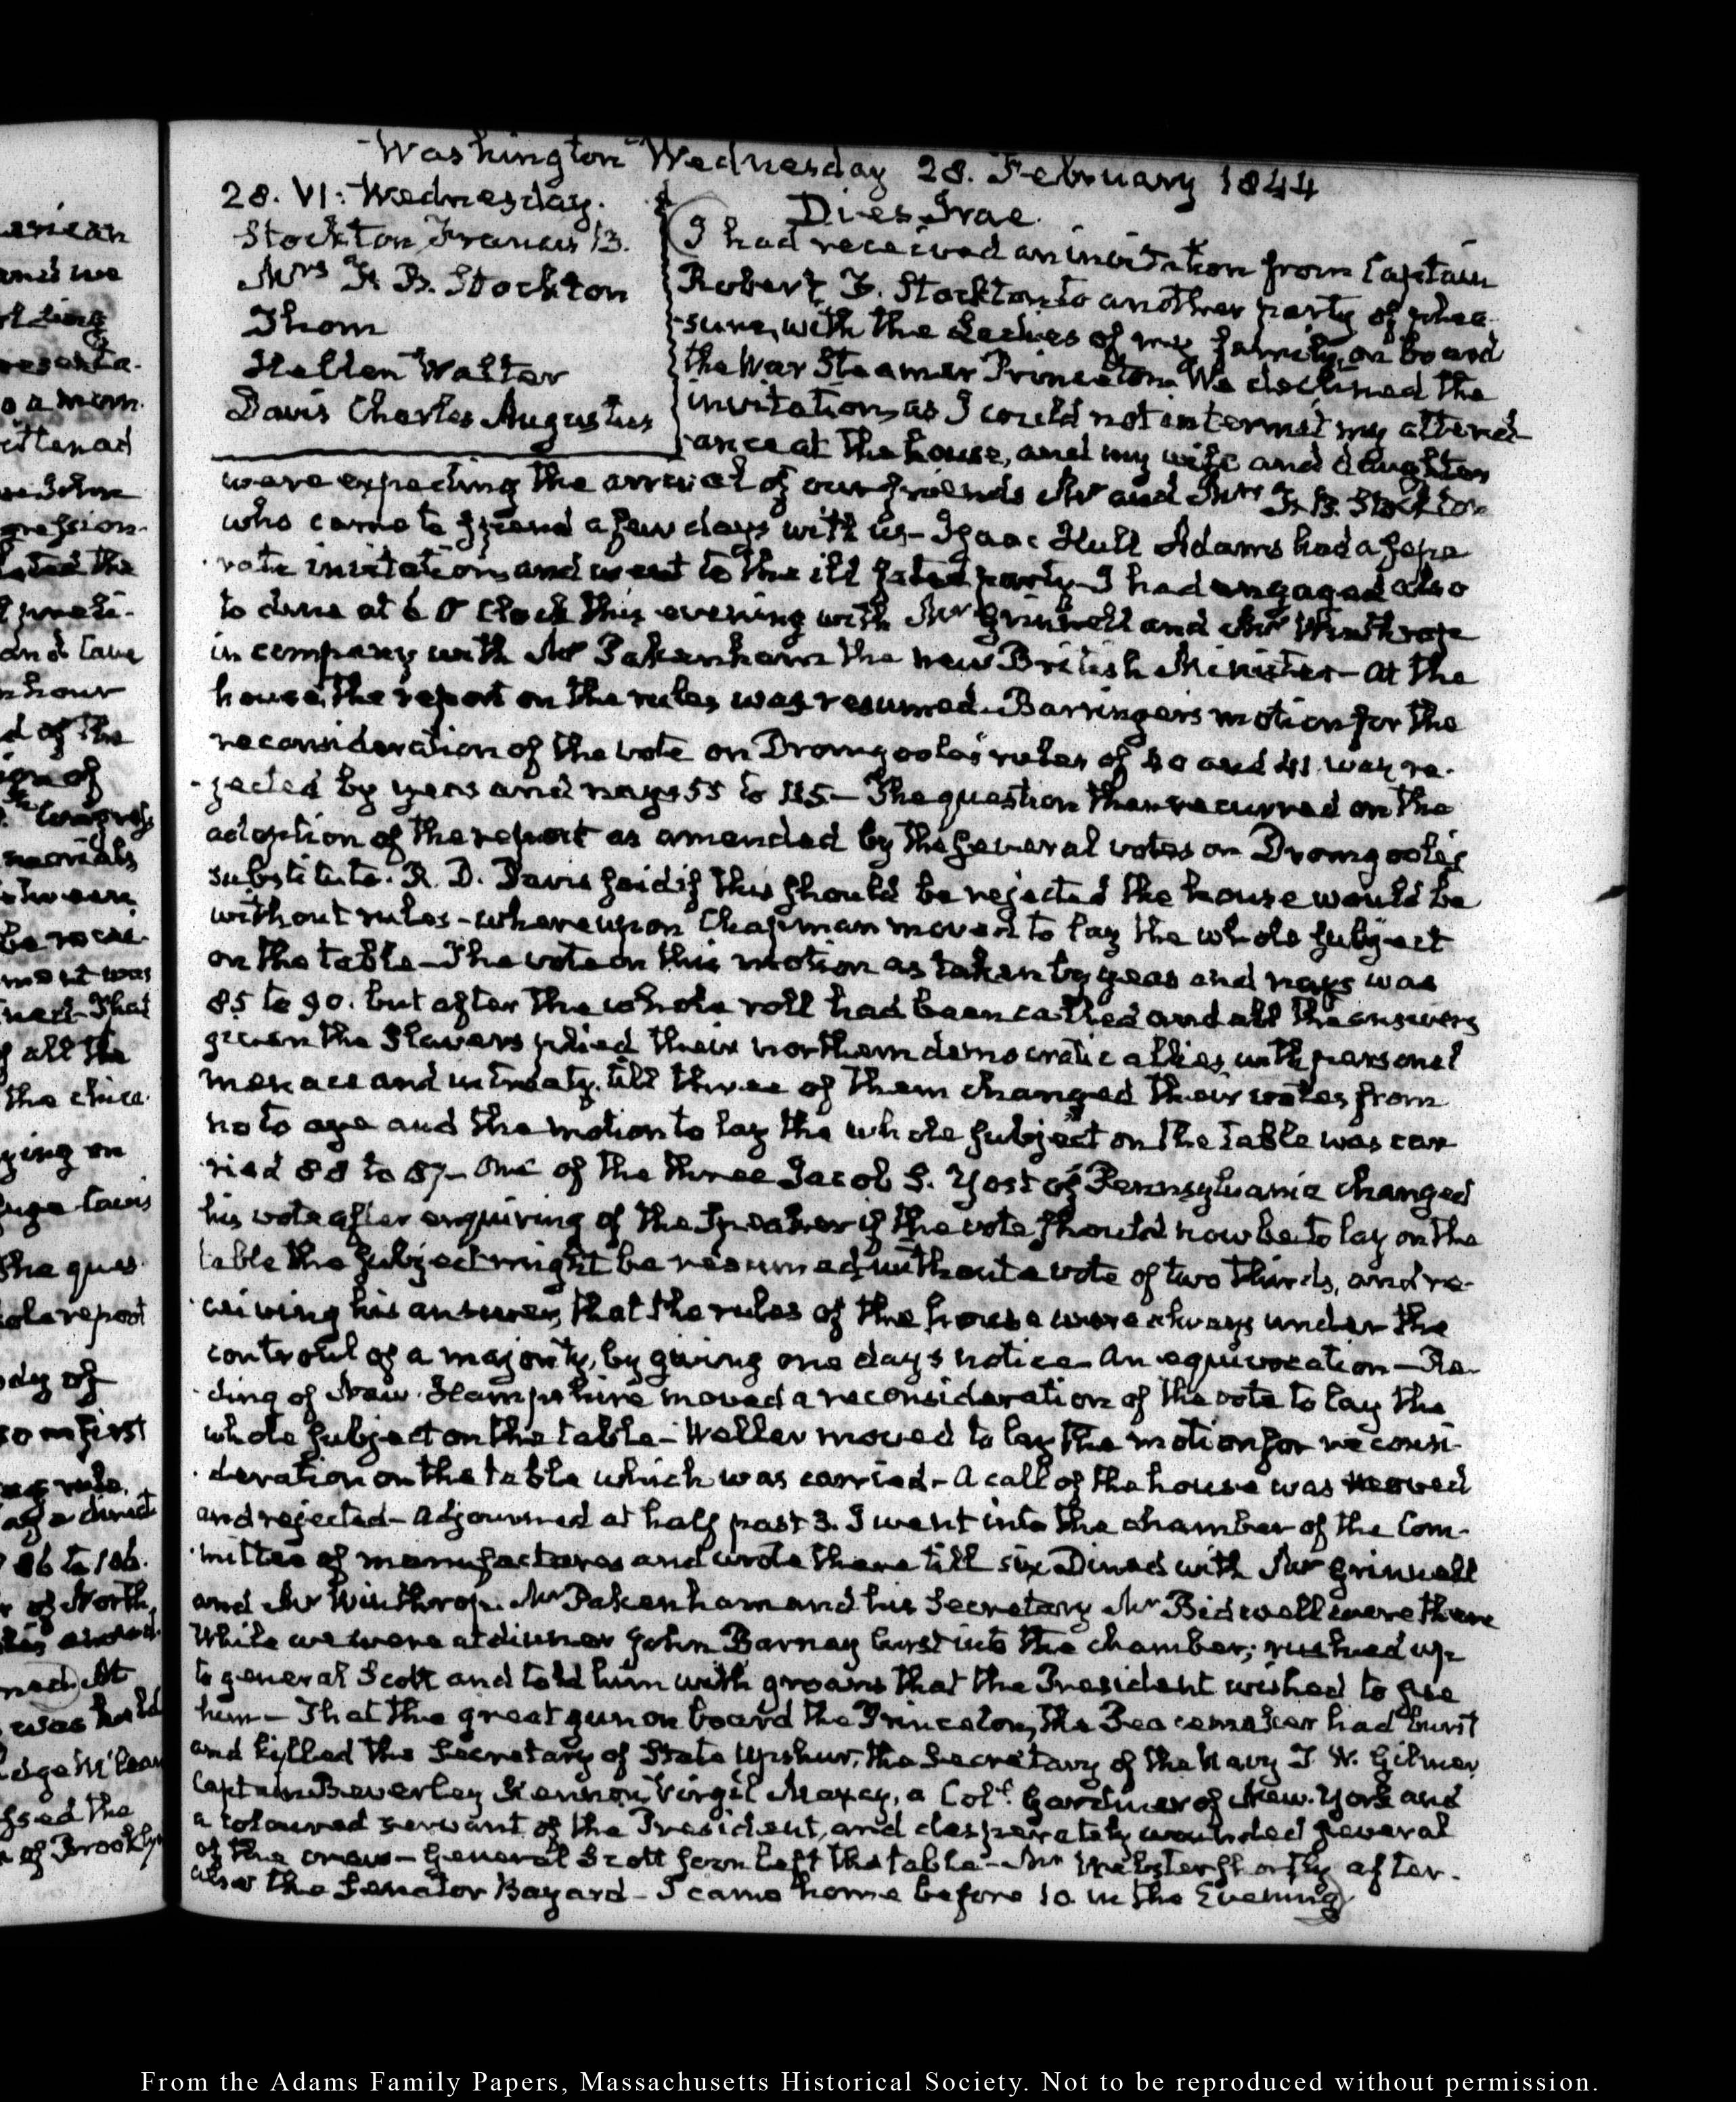 Washington Wednesday 28. February 1844
28. VI: Wednesday.
Stockton Francis B.
Mrs F. B. Stockton
Thom
Hellen Walter
Davis Charles Augustus
Dies Irae.
I had received an invitation from Captain
Robert F. Stockton to another party of plea-
sure, with the Ladies of my family, on board
the War Steamer Princeton. We declined the
invitation, as I could not intermit my attend-
ance at the house, and my wife and daughter
were expecting the arrival of our friends Mr and Mrs F. B. Stockton
who came to spend a few days with us - Isaac Hull Adams had a sepa-
rate invitation, and went to the ill fated party - I had engaged also
to dine at 6 O'Clock this evening with Mr Grinnell and Mr Winthrop
in company with Mr Pakenham the new British Minister - At the
house, the report on the rules was resumed. Barringer's motion for the
reconsideration of the vote on Dromgoole's rules of 40 and 41. was re-
jected by yeas and nays 55 to 115 - The question then recurred on the
adoption of the report as amended by the several votes on Dromgoole's
substitute. R. D. Davis said if this should be rejected the house would be
without rules - whereupon Chapman moved to lay the whole subject
on the table - The vote on this motion as taken by yeas and nays was
85 to 90. but after the whole roll had been called and all the answers
given the Slavers plied their northern democratic allies, with personal
menace and intreaty, till three of them changed their votes from
no to aye and the motion to lay the whole subject on the table was car-
ried 88 to 87 - One of the three Jacob S. Yost of Pennsylvania changed
his vote after enquiring of the Speaker if the vote should now be to lay on the
table the subject might be resumed without a vote of two thirds, and re-
ceiving his answer, that the rules of the house were always under the
controul of a majority, by giving one days notice - An equivocation - Re-
ding of New-Hampshire moved a reconsideration of the vote to lay the
whole subject on the table - Weller moved to lay the motion for reconsi-
deration on the table which was carried - A call of the house was moved
and rejected - Adjourned at half past 3. I went into the chamber of the Com-
mittee of manufactures and wrote there till six Dined with Mr Grinnell
and Mr Winthrop. Mr Pakenham and his Secretary Mr Bidwell were there
While we were at dinner John Barney burst into the chamber; rushed up
to general Scott and told him with groans that the President wished to see
him - That the great gun on board the Princeton, the Peacemaker had burst
and killed the Secretary of State Upshur, the Secretary of the Navy T. W. Gilmer
Captain Beverley Kennon, Virgil Maxcy, a Coll. Gardiner of New-York and
a coloured servant of the President, and desperately wounded several
of the crew - General Scott soon left the table - Mr Webster shortly after.
also the Senator Bayard - I came home before 10 in the Evening
From the Adams Family Papers, Massachusetts Historical Society. Not to be reproduced without permission.